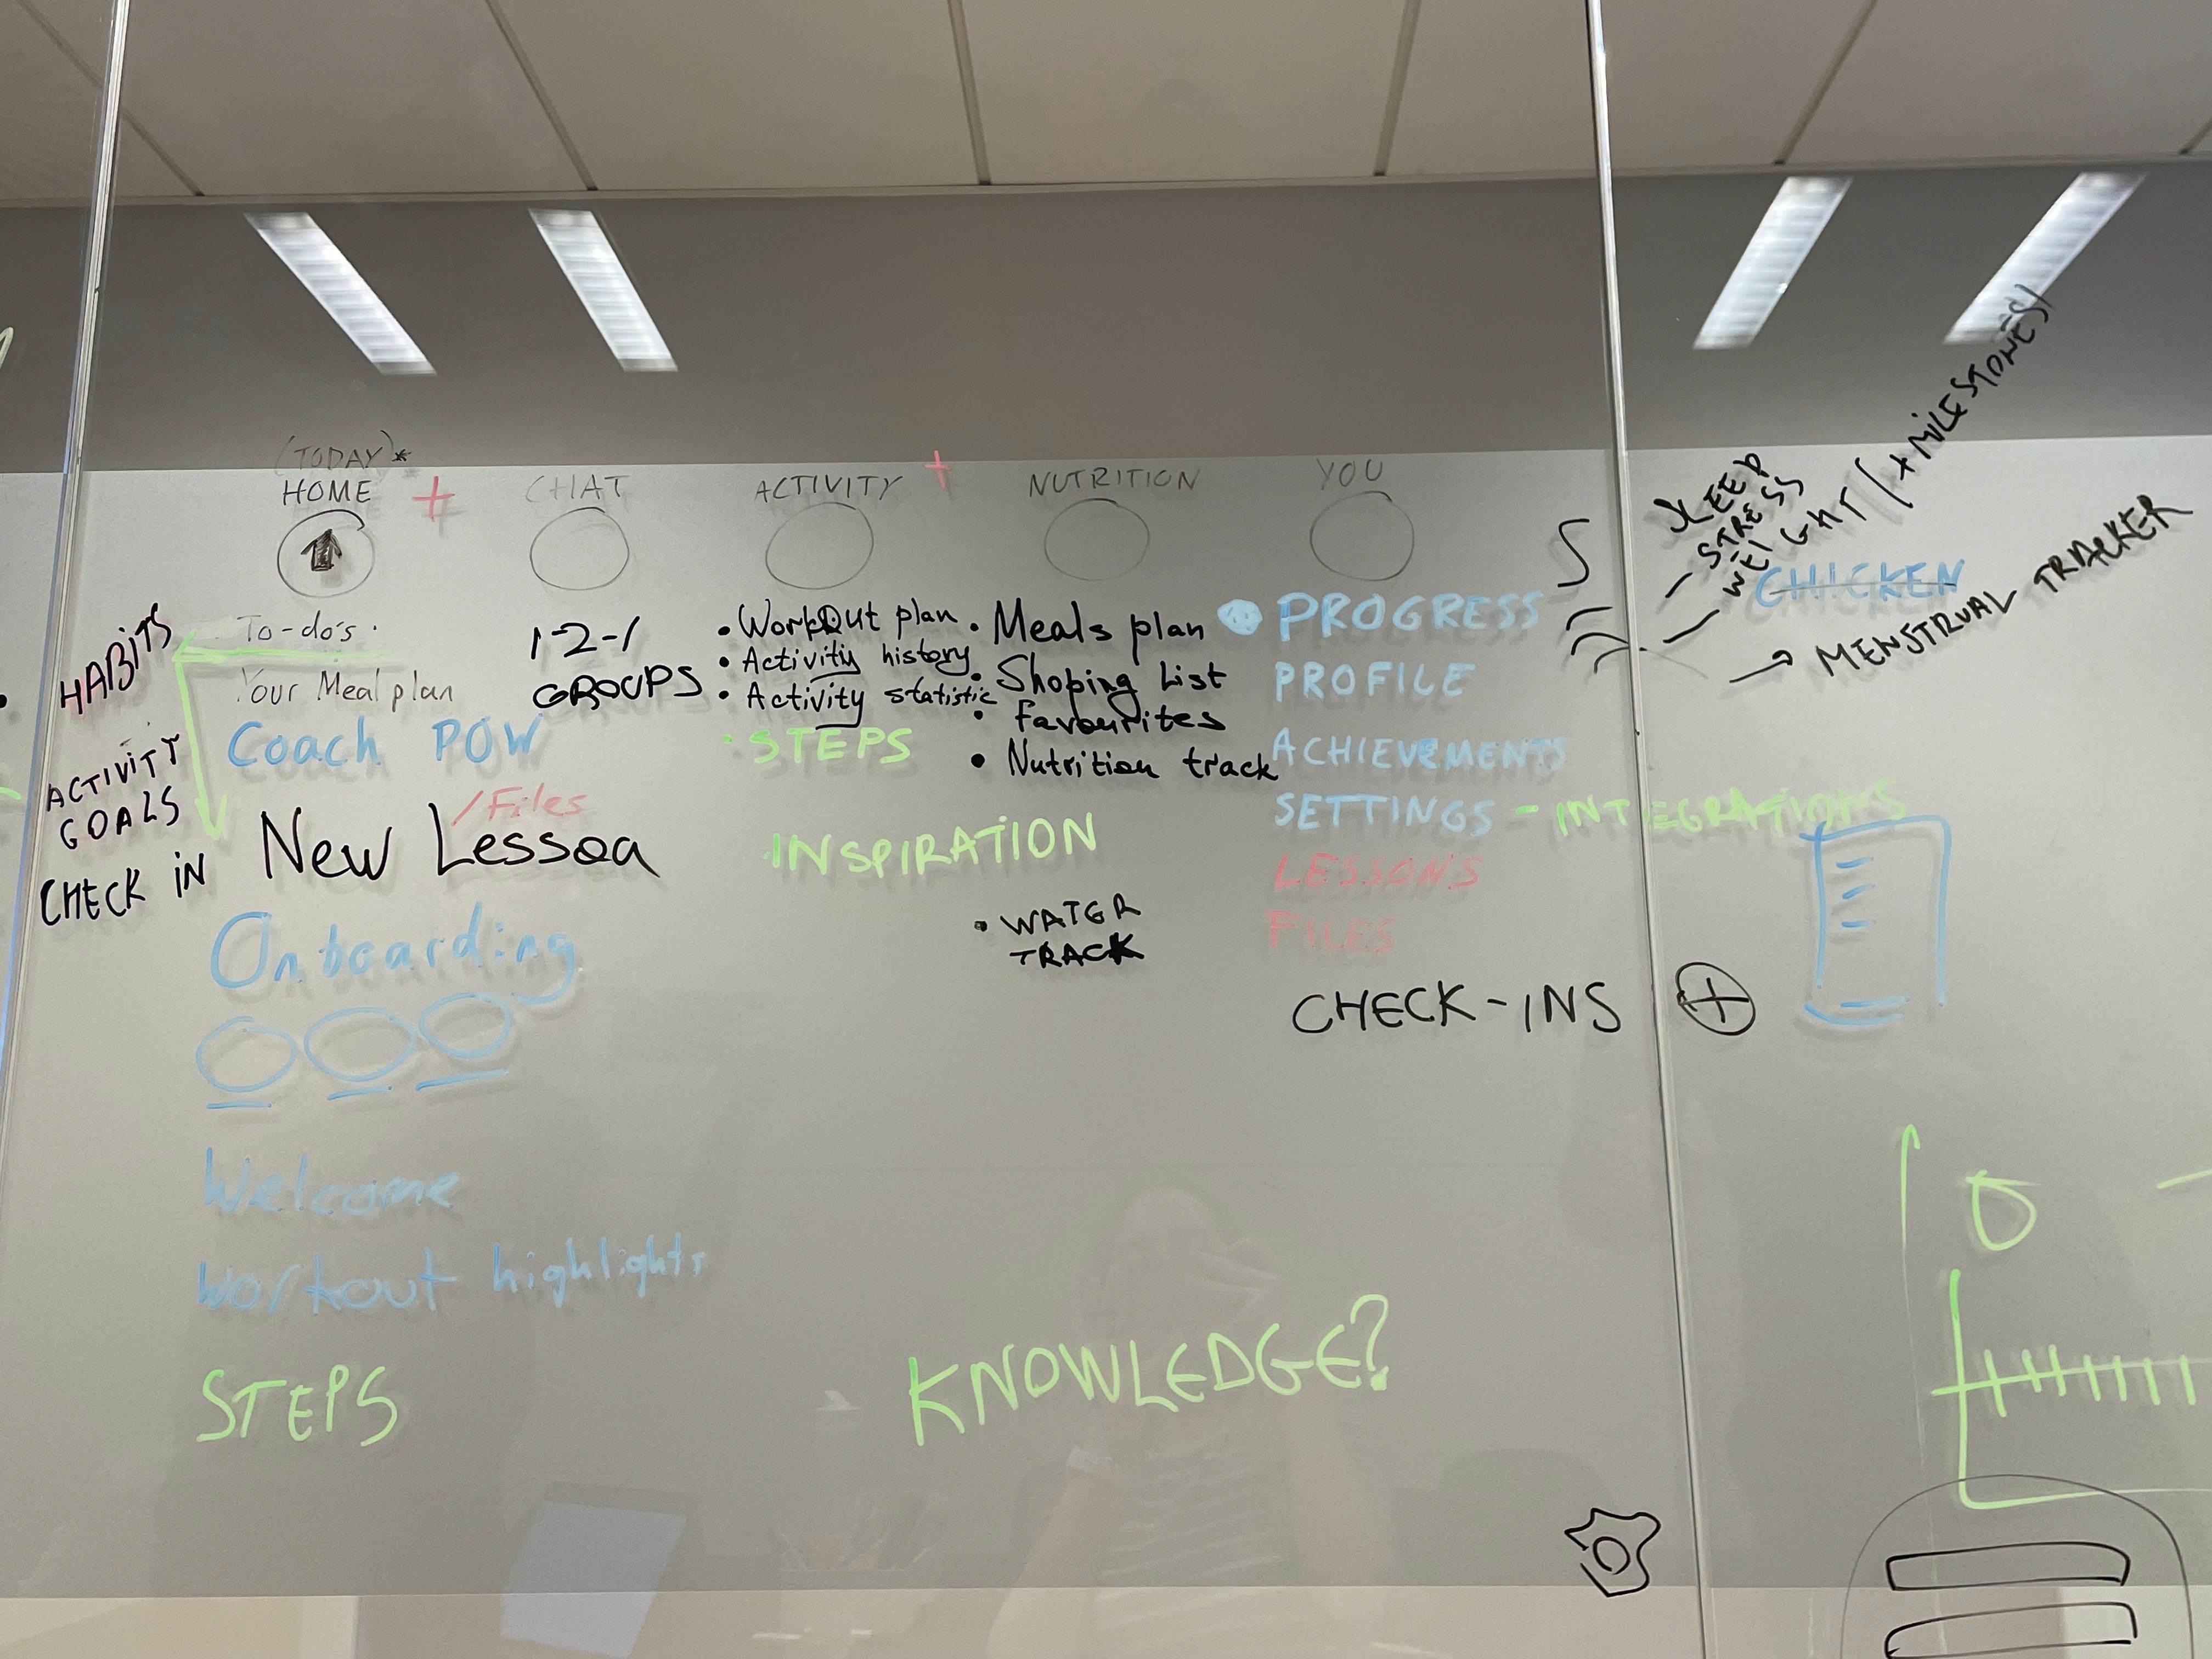 (TODAY)*
HOME
+
CHAT
ACTIVITY
+
NUTRITION
YOU
HABITS
ACTIVITY
GOALS
CHECK IN
To-do's
Your Meal plan
Coach POW
/Files
New Lesson
Onboarding
Welcome
Workout highlights
STEPS
1-2-1
GROUPS
• Workout plan
• Activitiy history
• Activity statistic
• STEPS
INSPIRATION
• Meals plan
• Shoping List
• favourites
• Nutrition track
• WATER
TRACK
KNOWLEDGE?
PROGRESS
PROFILE
ACHIEVEMENTS
SETTINGS - INTEGRATIONS
LESSONS
FILES
CHECK-INS
SLEEP
STRESS
WEIGHT (+MILESTONES)
CHICKEN
MENSTRUAL TRACKER